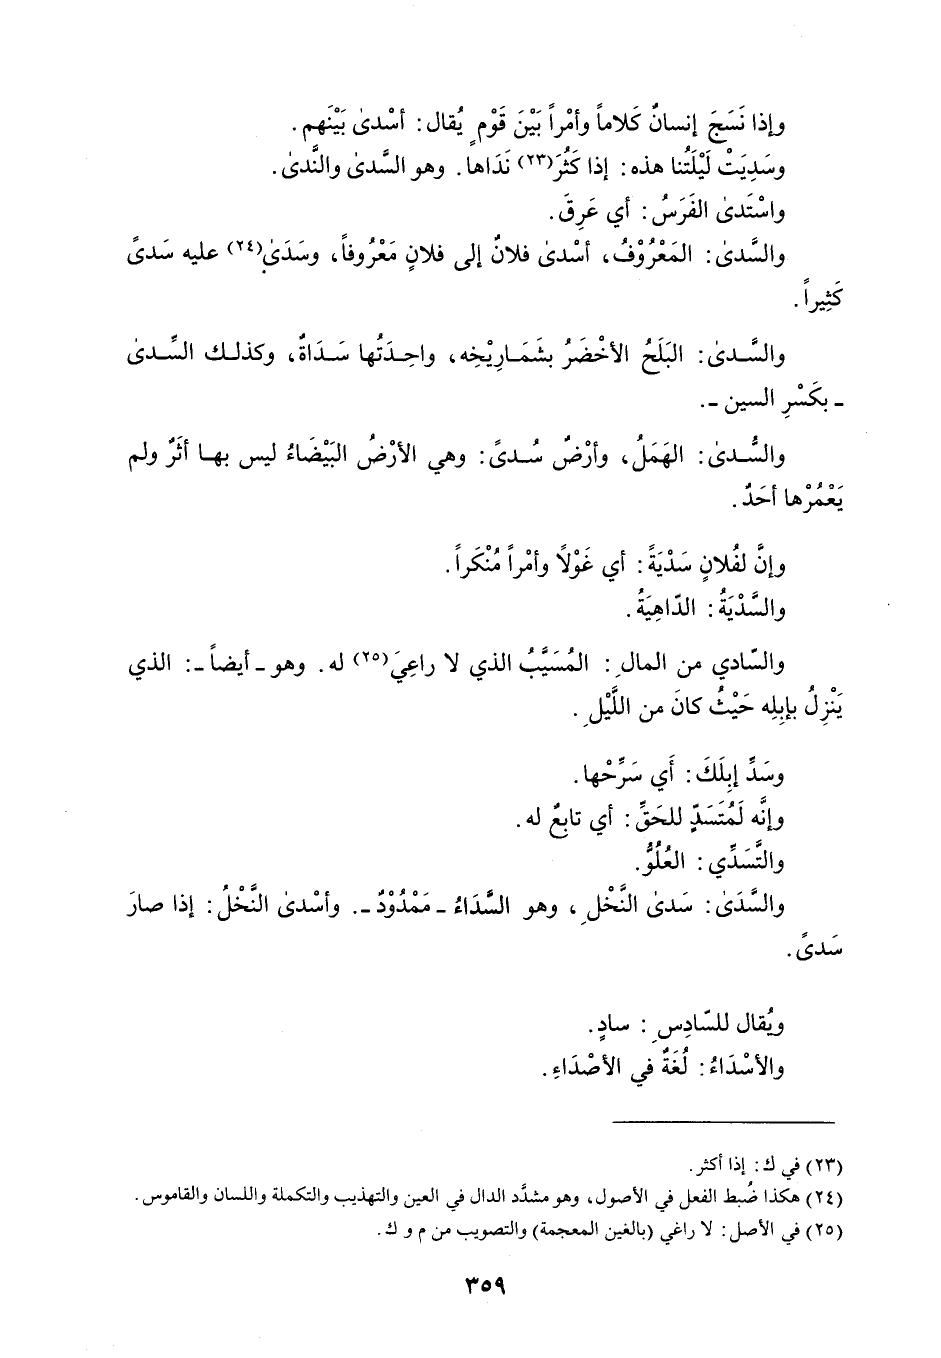 وإذا نَسَجَ إنسانٌ كَلاماً وأمْراً بَيْنَ قَوْمٍ يُقال: أسْدىٰ بَيْنَهم.
وسَدِيَتْ لَيْلَتُنا هذه: إذا كَثُرَ(٢٣) نَدَاها. وهو السَّدىٰ والنَّدىٰ.
واسْتَدىٰ الفَرَسُ: أي عَرِقَ.
والسَّدىٰ: المَعْرُوْفُ، أسْدىٰ فلانٌ إلى فلانٍ مَعْرُوفاً، وسَدَىٰ(٢٤) عليه سَدىً
كَثِيراً.
والسَّدىٰ: البَلَحُ الأخْضَرُ بشَمَارِيْخِه، واحِدَتُها سَدَاةٌ، وكذلك السِّدىٰ
ـ بكَسْرِ السين ـ.
والسُّدىٰ: الهَمَلُ، وأرْضٌ سُدىً: وهي الأرْضُ البَيْضَاءُ ليس بها أثَرٌ ولم
يَعْمُرْها أحَدٌ.
وإنَّ لفُلانٍ سَدْيَةً: أي غَوْلًا وأمْراً مُنْكَراً.
والسَّدْيَةُ: الدّاهِيَةُ.
والسّادي من المالِ: المُسَيَّبُ الذي لا راعِيَ(٢٥) له. وهو ـ أيضاً ـ: الذي
يَنْزِلُ بإبِلِه حَيْثُ كانَ من اللَّيْلِ.
وسَدِّ إبِلَكَ: أَي سَرِّحْها.
وإنَّه لَمُتَسَدٍّ للحَقِّ: أي تابِعٌ له.
والتَّسَدِّي: العُلُوُّ.
والسَّدَىٰ: سَدىٰ النَّخْلِ، وهو السَّدَاءُ ـ مَمْدُوْدٌ ـ. وأسْدىٰ النَّخْلُ: إذا صارَ
سَدىً.
ويُقال للسّادِسِ: سادٍ.
والأسْدَاءُ: لُغَةٌ في الأصْدَاءِ.
(٢٣) في ك: إذا أكثر.
(٢٤) هكذا ضُبط الفعل في الأصول، وهو مشدَّد الدال في العين والتهذيب والتكملة واللسان والقاموس.
(٢٥) في الأصل: لا راغي (بالغين المعجمة) والتصويب من م و ك.
٣٥٩